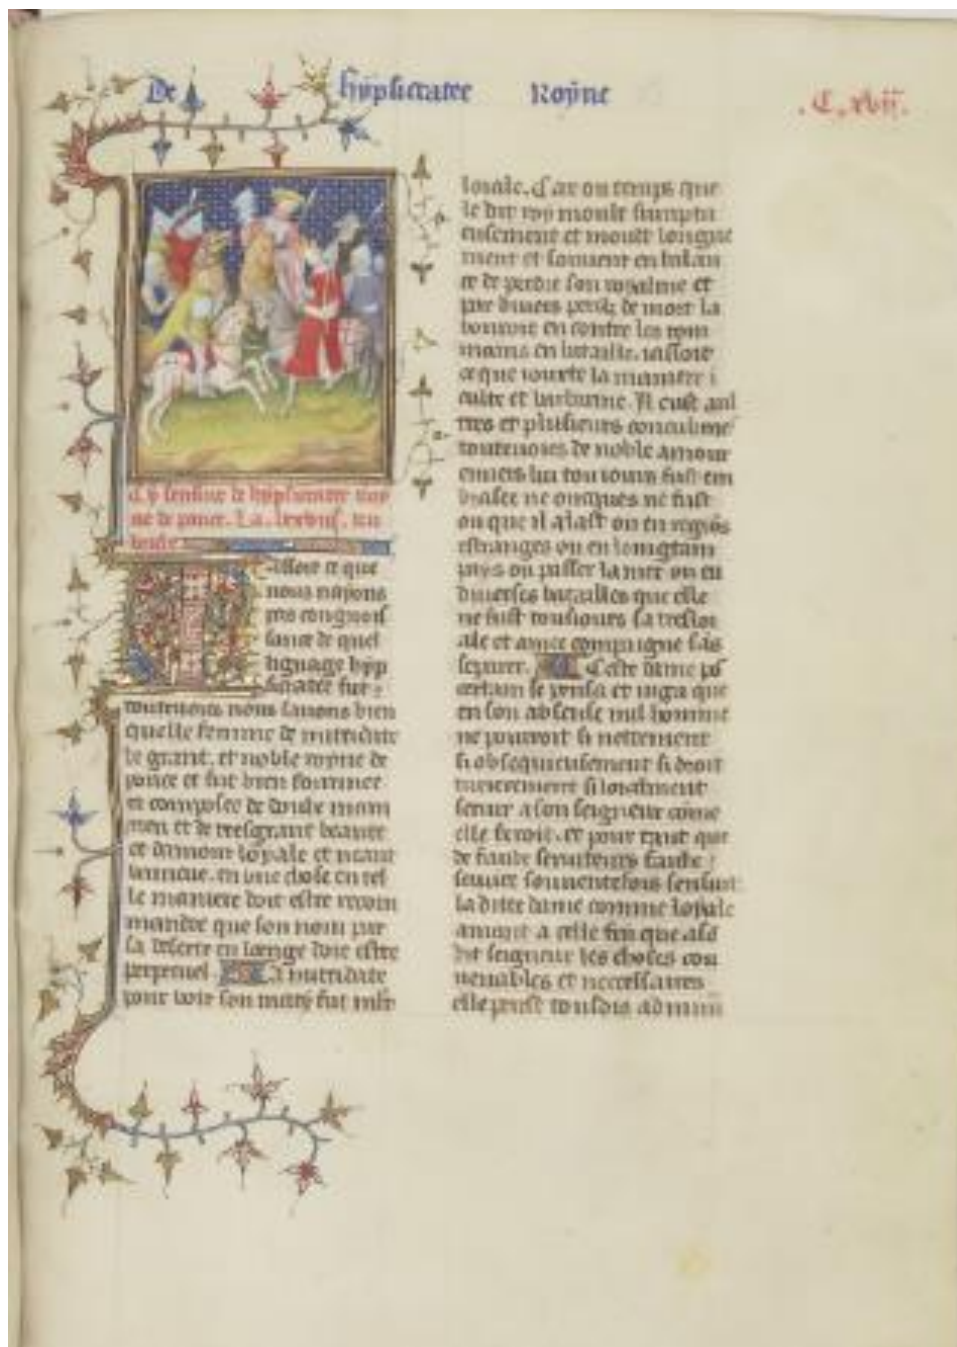 De hypsicratee Royne
.C. xvii.
Cy sensuit de hypsicratee roy
ne de ponce. La lxxviiie. ru
briche
assoit ce que
nous nayons
pas congnois
sance de quel
lignage hyp
sicratee fut
toutenoies nous sauons bien
quelle femme de mitridate
le grant. et noble royne de
ponce et fut bien fourmee
et composee de
et de tresgrant beaute
et damour loyale et
en une chose en tel
le maniere doit estre recom
mandee que son nom par
sa deserte en loenge doit estre
perpetuel. Ca mitridate
pour voir son mary fut
loyale. Car ou temps que
le dit roy moult sumptu
eusement et moult longue
ment et souuent en balan
ce de perdre son royalme et
par diuers perilz de mort la
bouroit en contre les rom
mains en bataille. iassoit
ce que toute la maniere i
culte et barbarine. Il eust aul
tres et plusieurs concubines
toutenoies de noble amour
enuers lui tousiours fust em
brasee ne oncques ne fust
ou que il alast ou en regiōs
estranges ou en loingtain
pays ou passer la mer ou en
diuerses batailles que elle
ne fust tousiours sa tresloi
ale et amee compaigne sās
separer. Ceste dame
certain se pensa et iuga que
en son absense nul homme
ne pouuoit si nettement
si obsequieusement si droit
turierement si loyalment
seruir a son seigneur cōme
elle feroit. et pour tant que
de faude seruiteurs
souuentefois sensuit
la ditte dame comme loyale
amant a celle fin que
dit seigneur les choses con
uenables et neccessaires
elle peust tousdis admini